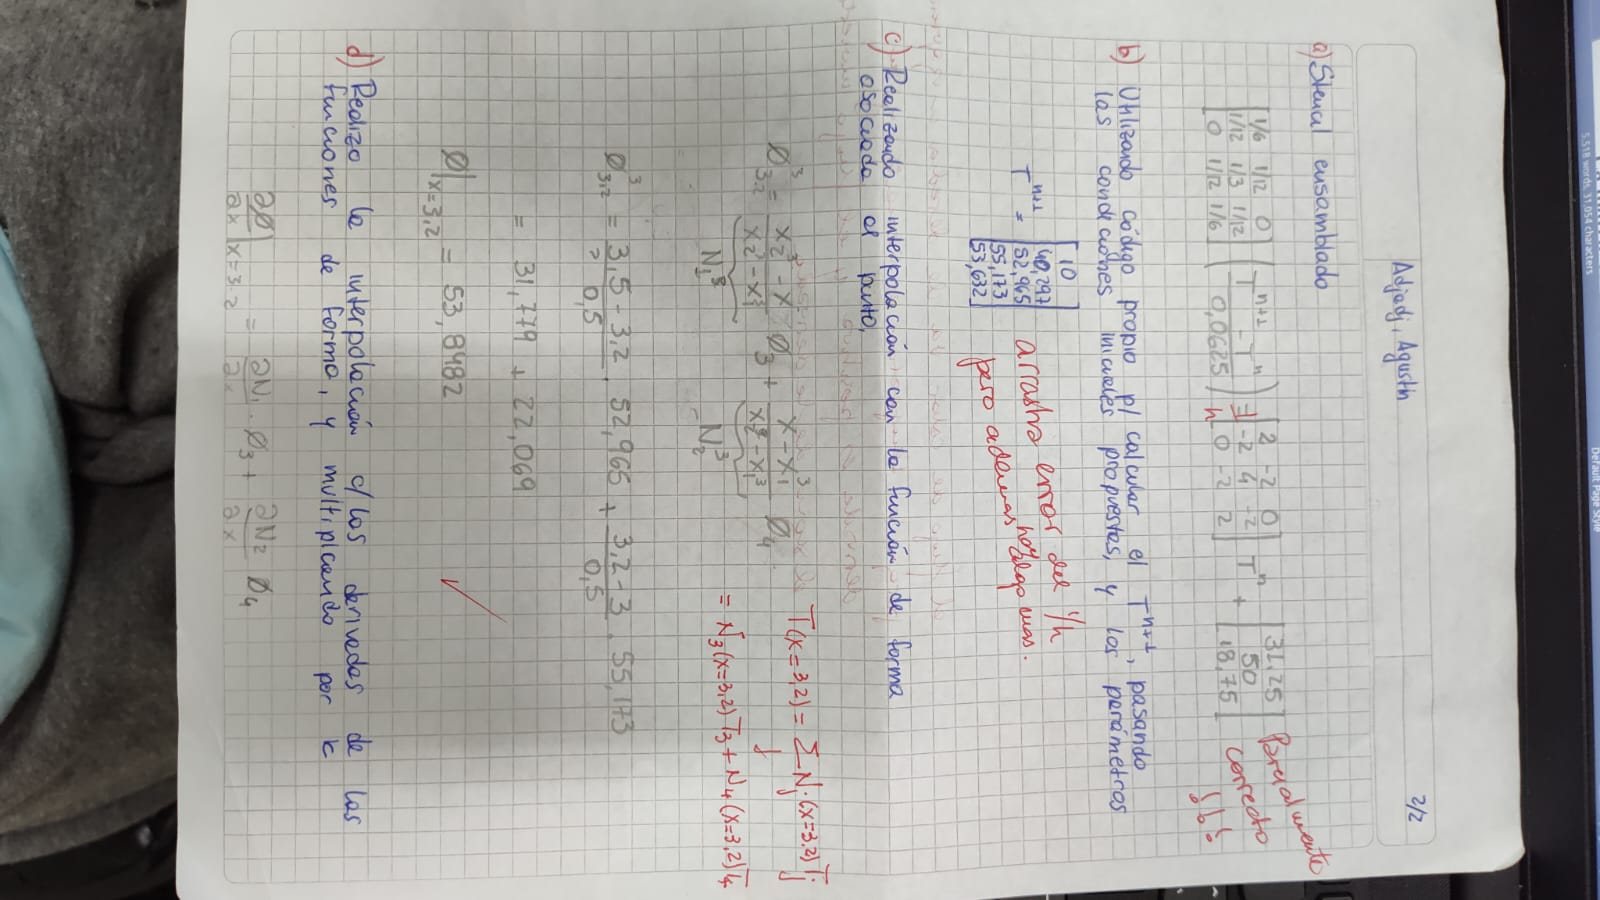 5.518 words, 31.054 characters
Default Page Style
Adjadj, Agustín
2/2
a) Stencil ensamblado
[1/6 1/12 0
1/12 1/3 1/12
0 1/12 1/6] (T^{n+1} - T^n / 0,0625) = 1/h [2 -2 0
-2 4 -2
0 -2 2] T^n + [31,25
50
18,75]
Parcialmente
correcto
!!!
b) Utilizando código propio p/ calcular el T^{n+1}, pasando
las condiciones iniciales propuestas, y los parámetros
T^{n+1} = [10
40,297
52,965
55,173
53,632]
arrastra error del 1/h
pero ademas hay algo mas.
c) Realizando interpolación con la función de forma
asociada al punto,
Ø^3_{3,2} = x_2^3 - x / x_2^3 - x_1^3 Ø_3 + x - x_1^3 / x_2^3 - x_1^3 Ø_4
N_1^3 N_2^3
T(x=3,2) = Σ N_j (x=3.2) T_j
j
= N_3 (x=3,2) T_3 + N_4 (x=3,2) T_4
Ø^3_{3,2} = 3,5 - 3,2 / 0,5 . 52,965 + 3,2 - 3 / 0,5 . 55,173
= 31,779 + 22,069
Ø|_{x=3,2} = 53,8482
d) Realizo la interpolación c/ las derivadas de las
funciones de forma, y multiplicando por k
∂Ø/∂x|_{x=3.2} = ∂N_1/∂x . Ø_3 + ∂N_2/∂x Ø_4